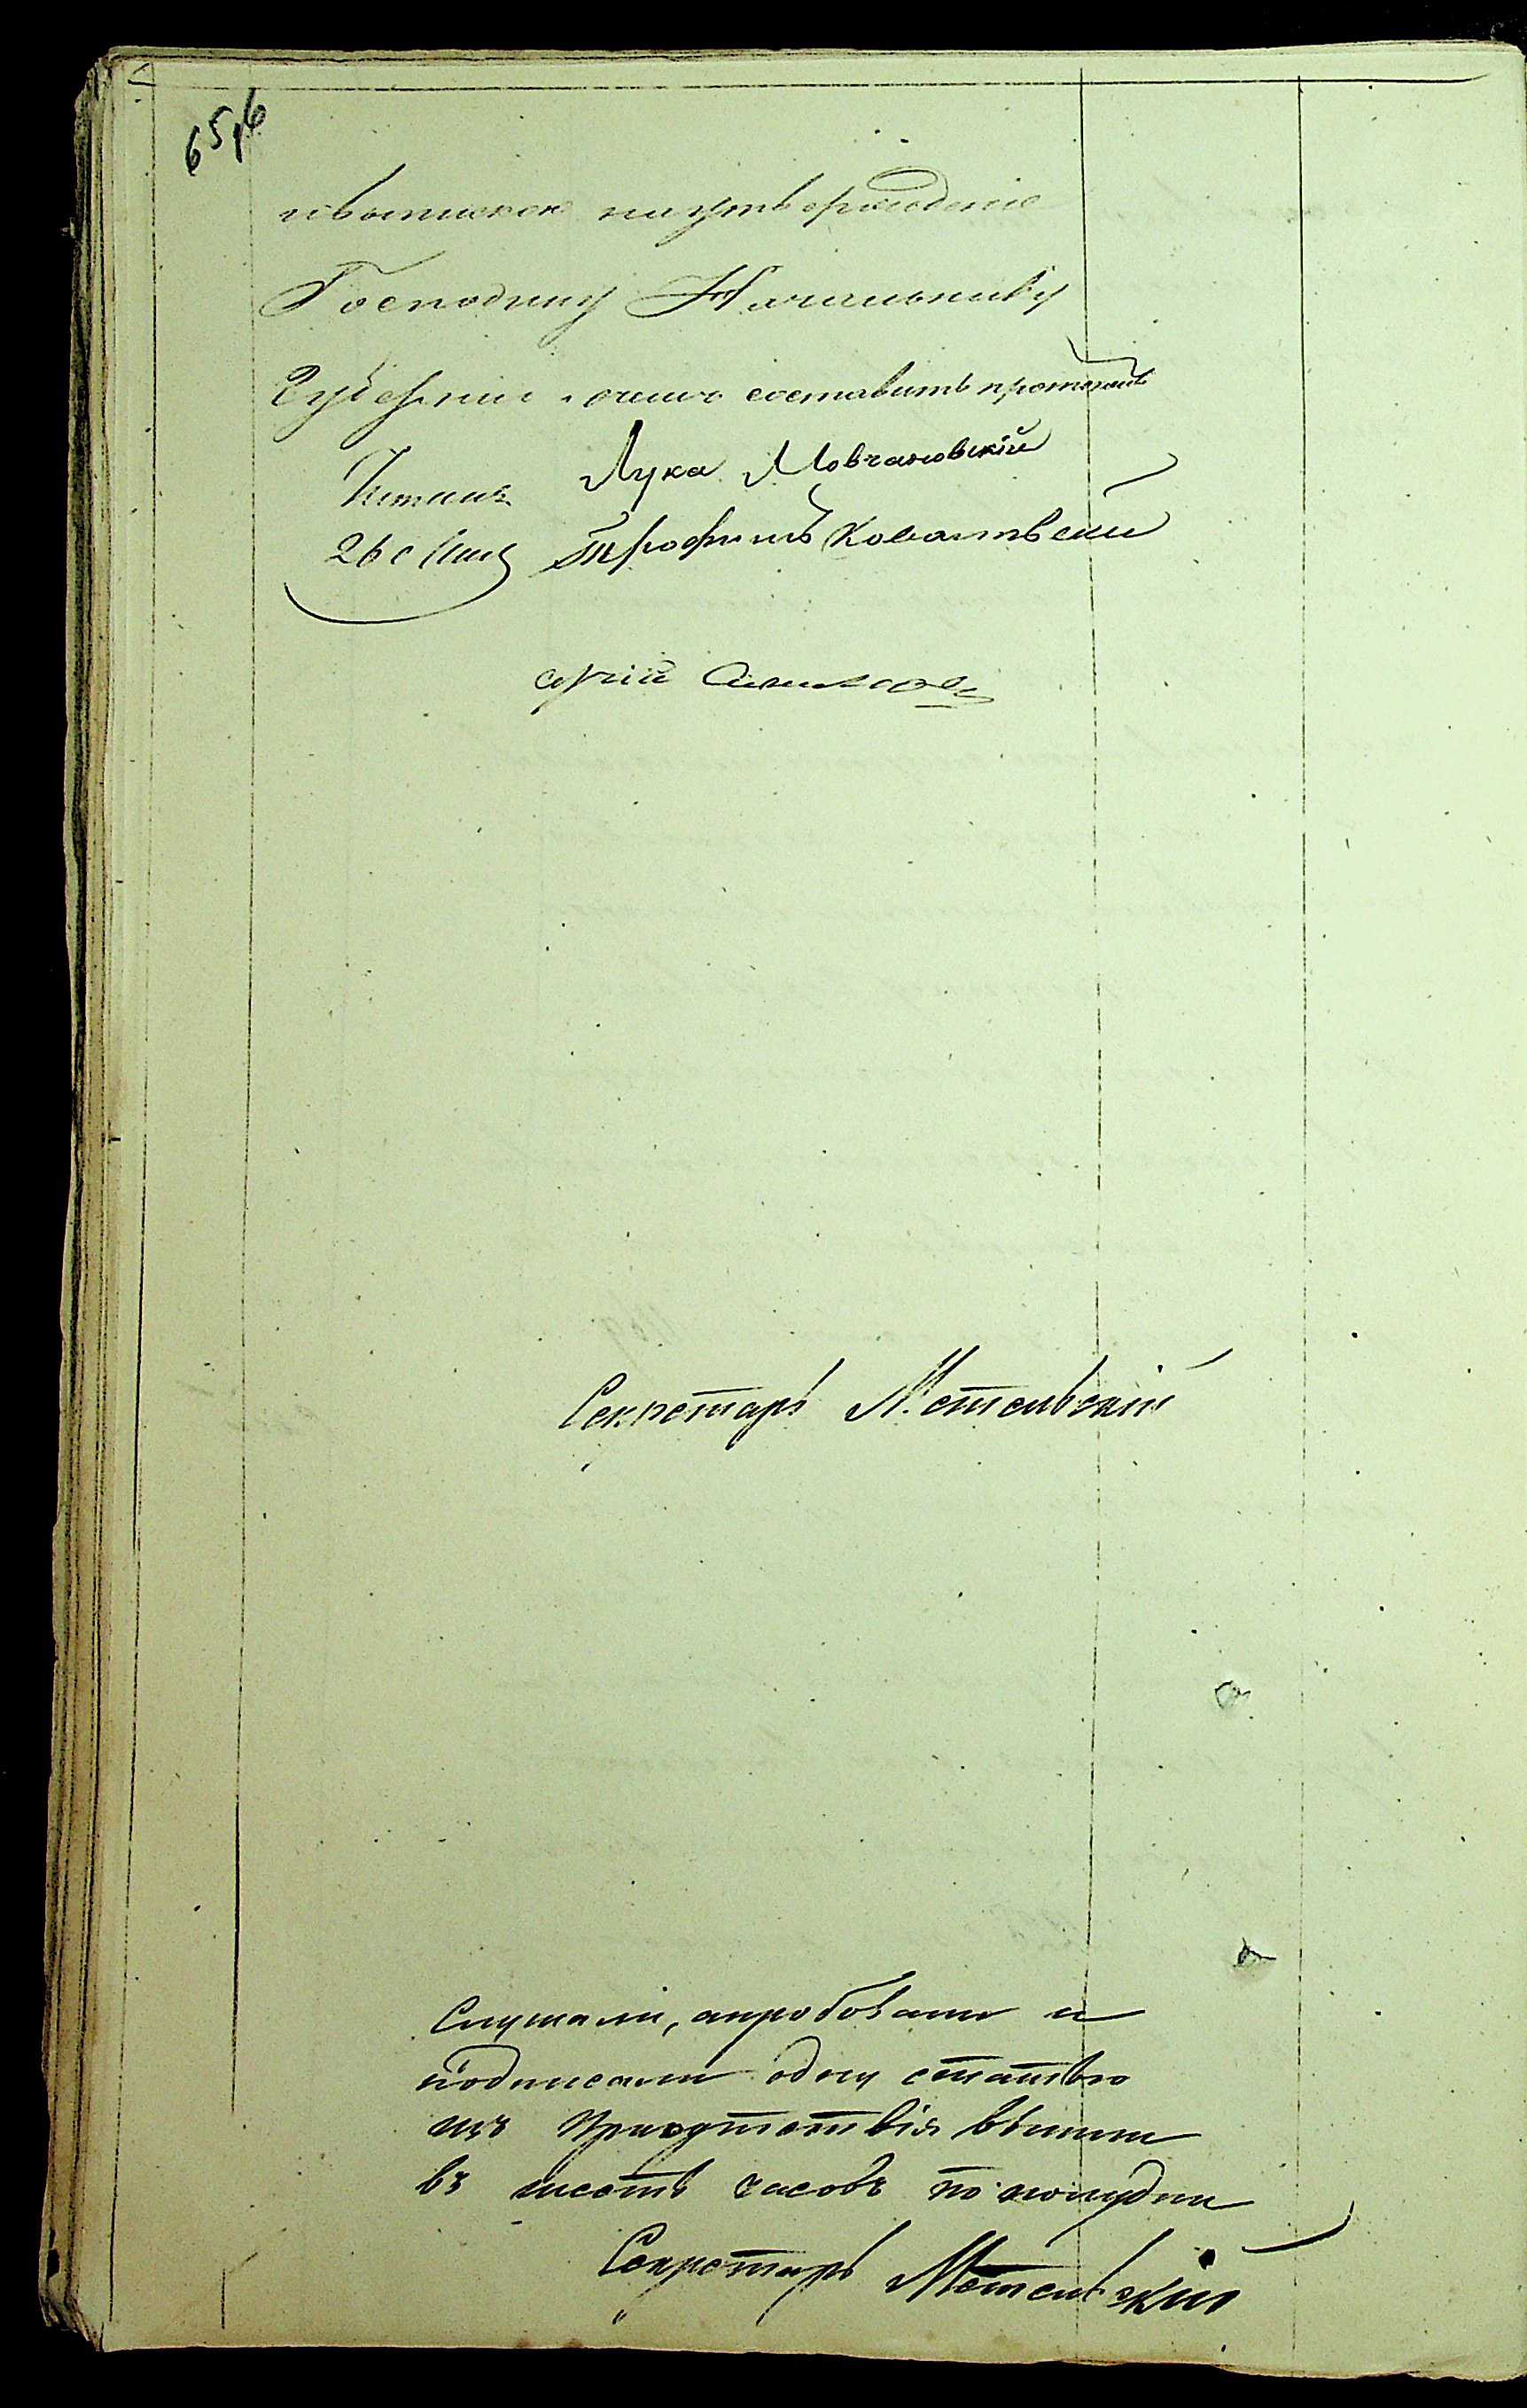 на утвержденіе
Господину Начальнику
Губерніи о чемъ составить протоколъ
Читалъ Лука Мовчановскій
26 Трофимъ
Сергій
Секретарь Метельскій
Слушали, апробовали и
подписали одну статью
изъ Присутствія вышли
въ шесть часовъ по полудни
Секретарь Метельскій